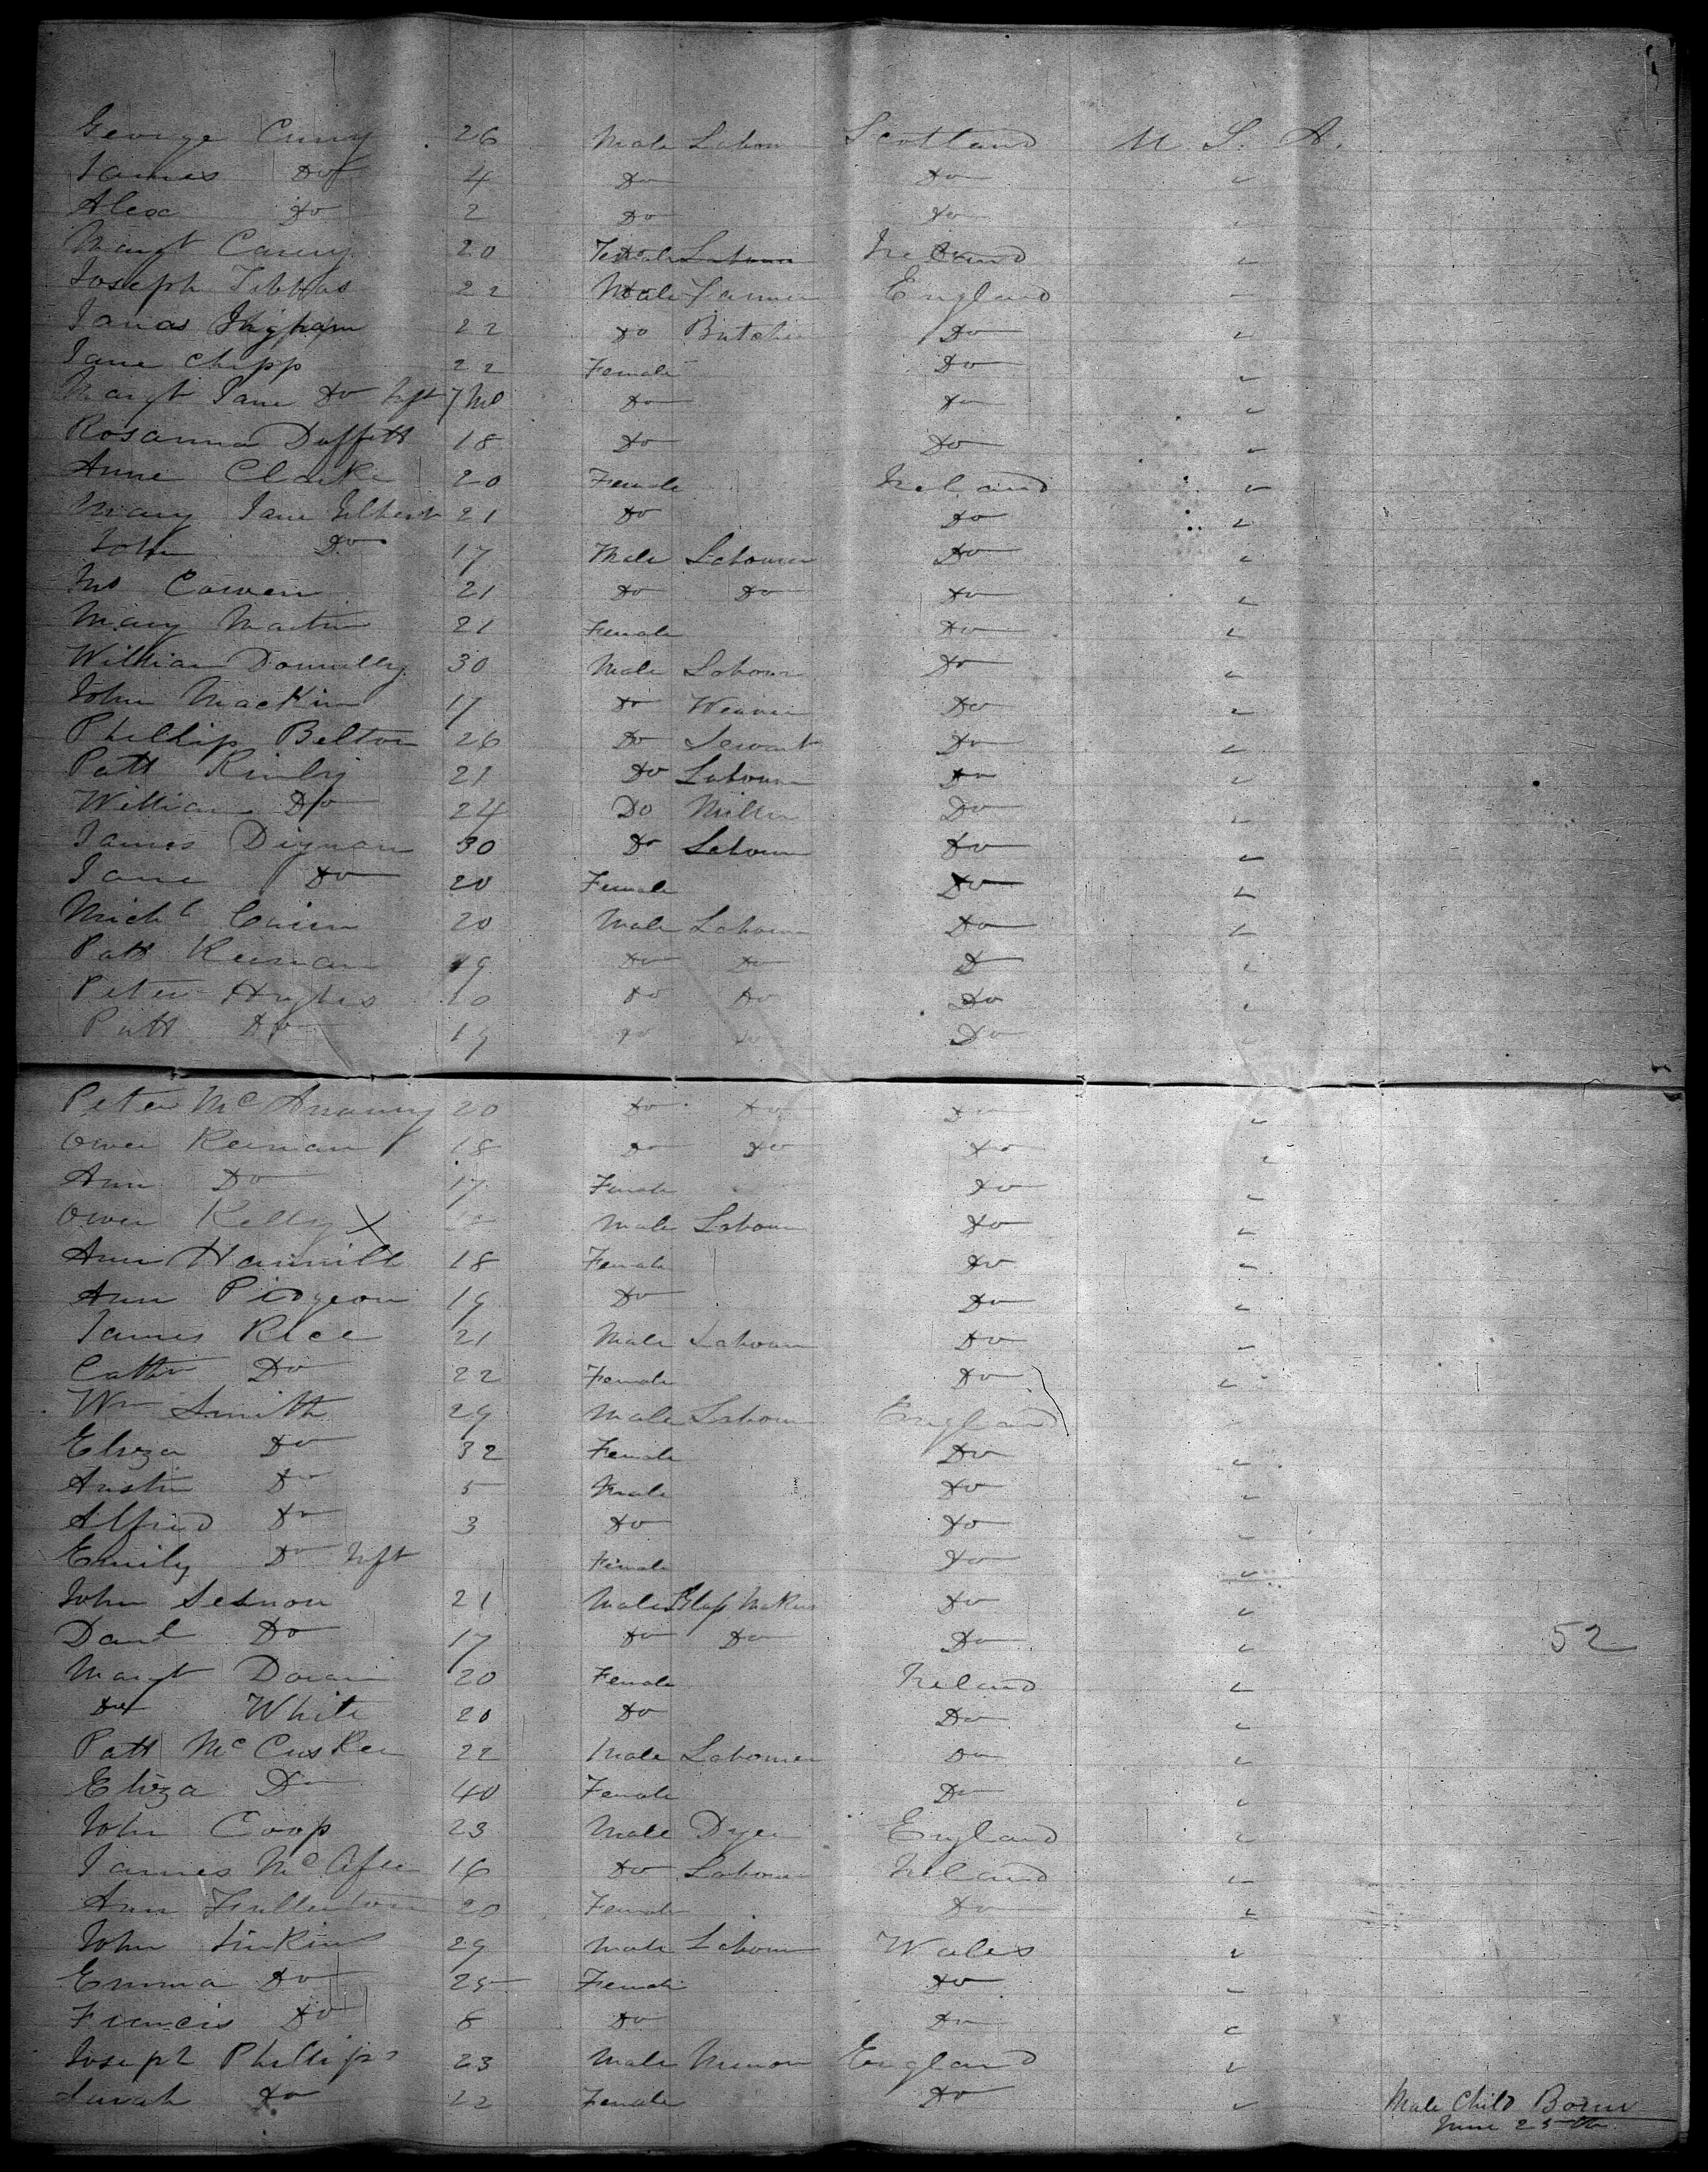 George Curry 26 Male Labour Scotland U. S. A.
James Do 4 Do Do
Alex Do 2 Do Do
Margt Carey 20 Female Ireland
Joseph Tibbas 22 Male Farmer England
Ingham 22 Do Butcher Do
Jane Chipp 22 Female Do
Margt Jane Do Inft 7 Mo Do Do
Rosanna Duffett 18 Do Do
Anne Clarke 20 Female Ireland
Mary Jane Gilbert 21 Do Do
John Do 17 Male Labourer Do
Cowen 21 Do Do Do
Mary Martin 21 Female Do
William Donnelly 30 Male Labour Do
John Mackin 17 Do Weaver Do
Phillip Belton 26 Do Servant Do
Patt 21 Do Labour Do
William Do 24 Do Miller Do
James Dignan 30 Do Labour Do
Jane Do 20 Female Do
Michl 20 Male Labour Do
Patt Keenan 19 Do Do Do
Peter Hughes Do Do Do
Patt Do 19 Do Do Do
Peter Mc 20 Do Do Do
Owen Keenan 18 Do Do Do
Ann Do 17 Female Do
Owen Kelly X Male Labour Do
Ann Hamill 18 Female Do
Ann Pidgeon 19 Do Do
James Rice 21 Male Labour Do
Do 22 Female Do
Wm Smith 29 Male Labour England
Eliza Do 32 Female Do
Austin Do 5 Male Do
Alfred Do 3 Do Do
Emily Do Inft Female Do
John Sesnon 21 Male Glass Maker Do
Danl Do 17 Do Do Do 52
Margt Doran 20 Female Ireland
Do White 20 Do Do
Patt McCusker 22 Male Labourer Do
Eliza Do 40 Female Do
John Coop 23 Male Dyer England
James McAfee 16 Do Labour Ireland
Ann Fullerton 20 Female Do
John Jinkins 29 Male Labour Wales
Emma Do 25 Female Do
Francis Do 8 Do Do
Joseph Phillips 23 Male England
Sarah Do 22 Female Do Male Child Born
June 25th